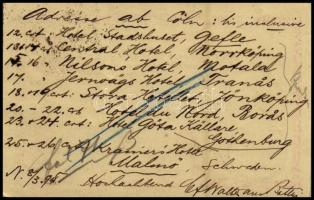 Adresse ab Cöln: bis inclusive
12. ct. Hotel Stadshuset, Gefle
13/14. ct. Central Hotel, Norrköping
15. 16. " Nilsons Hotel, Motala
17. " Jernvägs Hotel, Tranås
18. 19. ct. Stora Hotellet, Jonköping
20. - 22. ct. Hotel du Nord, Borås
23. & 24. ct. Hotel Göta Källare, Gothenburg
25. & 26. ct. Kramers Hotel
Malmö, Schweden.
N. 8/3. 95
Hochachtend